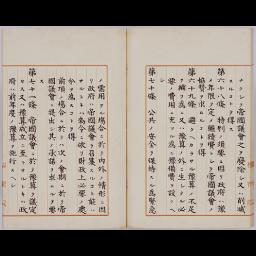 ナクシテ帝國議會之ヲ廢除シ又ハ削減
スルコトヲ得ス
第六十八條 特別ノ須要ニ因リ政府ハ豫
メ年限ヲ定メ繼續費トシテ帝國議會ノ
協贊ヲ求ムルコトヲ得
第六十九條 避クヘカラサル豫算ノ不足
ヲ補フ爲ニ又ハ豫算ノ外ニ生シタル必
要ノ費用ニ充ツル爲ニ豫備費ヲ設クヘ
シ
第七十條 公共ノ安全ヲ保持スル爲緊急
ノ需用アル場合ニ於テ內外ノ情形ニ因
リ政府ハ帝國議會ヲ召集スルコト能ハ
サルトキハ勅令ニ依リ財政上必要ノ處
分ヲ爲スコトヲ得
前項ノ場合ニ於テハ次ノ會期ニ於テ帝
國議會ニ提出シ其ノ承諾ヲ求ムルヲ要
ス
第七十一條 帝國議會ニ於テ豫算ヲ議定
セス又ハ豫算成立ニ至ラサルトキハ政
府ハ前年度ノ豫算ヲ施行スヘシ